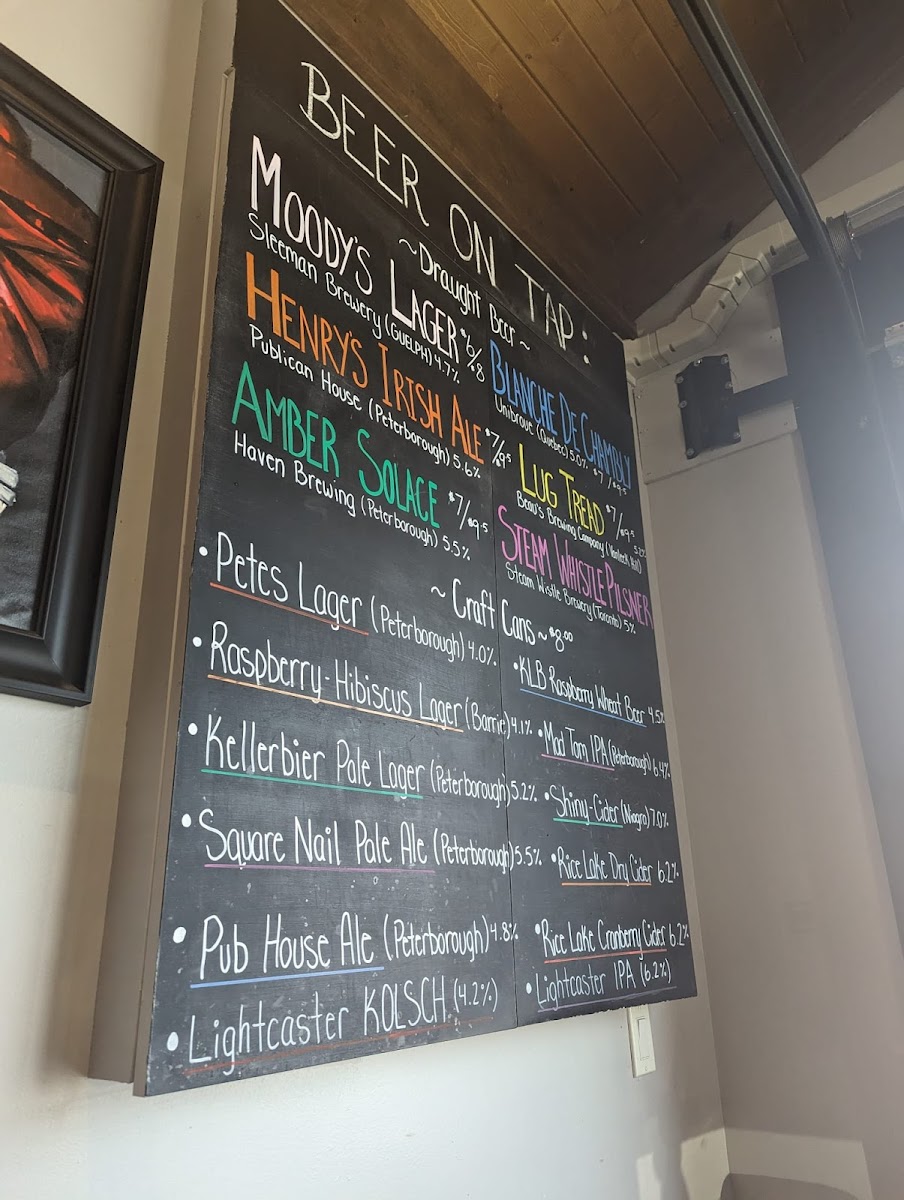 BEER ON TAP:
~Draught Beer~
MOODY'S LAGER $6/$8
Sleeman Brewery (GUELPH) 4.7%
HENRY'S IRISH ALE $7/$9.5
Publican House (Peterborough) 5.6%
AMBER SOLACE $7/$9.5
Haven Brewing (Peterborough) 5.5%
BLANCHE DE CHAMBLY
Unibroue (Quebec) 5.0% $7/$9.5
LUG TREAD $7/$9.5
Beau's Brewing Company (Vankleek Hill) 5.2%
STEAM WHISTLE PILSNER
Steam Wistle Brewery (Toronto) 5%
~Craft Cans~ $8.00
• Petes Lager (Peterborough) 4.0%
• Raspberry-Hibiscus Lager (Barrie) 4.1%
• Kellerbier Pale Lager (Peterborough) 5.2%
• Square Nail Pale Ale (Peterborough) 5.5%
• Pub House Ale (Peterborough) 4.8%
• Lightcaster KOLSCH (4.2%)
• KLB Raspberry Wheat Beer 4.5%
• Mad Tom IPA (Peterborough) 6.4%
• Shiny-Cider (Niagra) 7.0%
• Rice Lake Dry Cider 6.2%
• Rice Lake Cranberry Cider 6.2%
• Lightcaster IPA (6.2%)